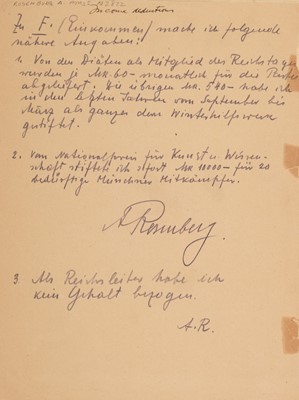 Income deductions
Zu F. (Einkommen) mache ich folgende
nähere Angaben:
1. Von den Diäten als Mitglied des Reichstages
werden je Mk. 60- monatlich für die Partei
abgeliefert. Die übrigen Mk. 540- habe ich
in den letzten Jahren vom September bis
März als ganzes dem Winterhilfswerk
gestiftet.
2. Vom Nationalpreis für Kunst u. Wissen-
schaft stiftete ich sofort Mk 10000- für 20
bedürftige Münchner Mitkämpfer.
A Rosenberg.
3. Als Reichsleiter habe ich
kein Gehalt bezogen.
A.R.